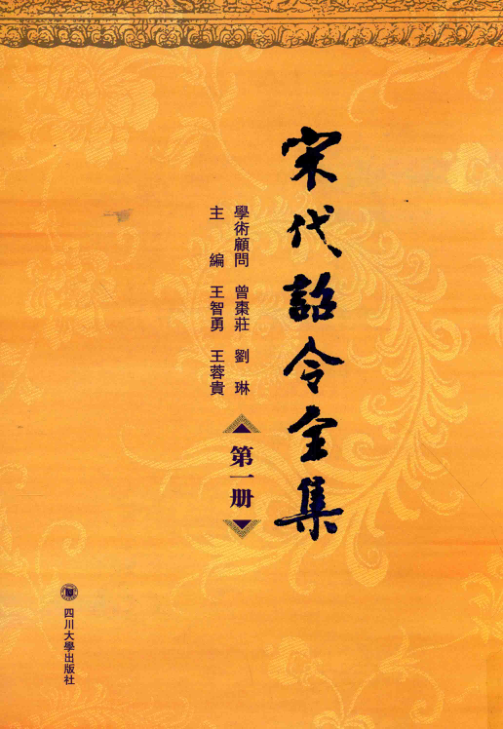 宋代詔令全集
學術顧問 曾棗莊 劉琳
主編 王智勇 王蓉貴
第一册
四川大學出版社